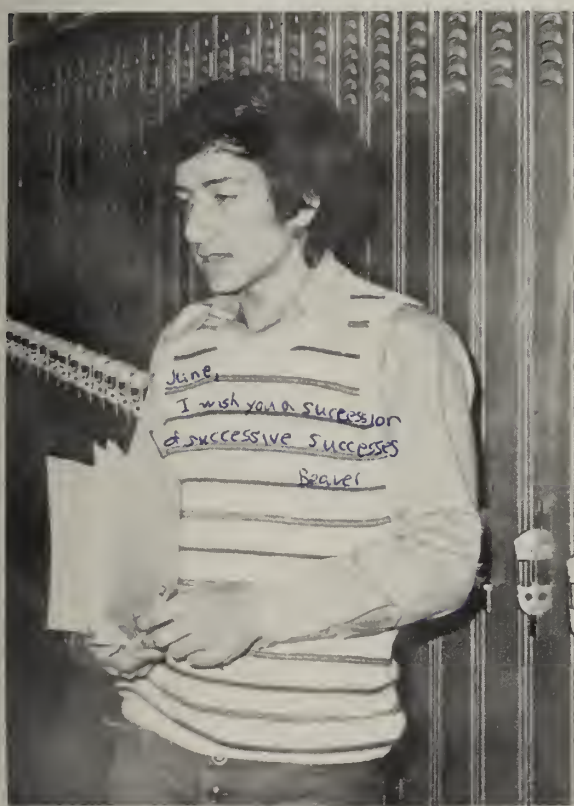 June,
I wish you a succession
of successive successes
Beaver